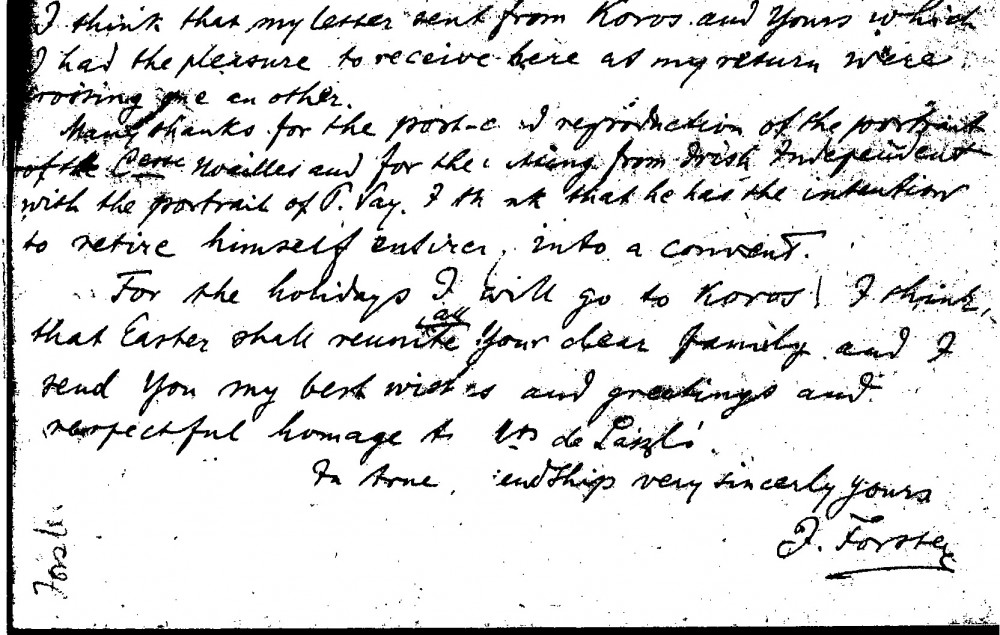 I think that my letter sent from Koros and Yours which
I had the pleasure to receive here at my return were
rossing one an other.
Many thanks for the post-c d reproduction of the portrait
of the Csse Noailles and for the c tting from Irish Independent
with the portrait of P. Vay. I th nk that he has the intention
to retire himself entirel into a convent.
For the holidays I will go to Koros! I think,
all
that Easter shall reunite Your dear family and I
send You my best wish s and greetings and
respectful homage to Mrs de László.
In true endship very sincerly yours
J. Forster
Forst